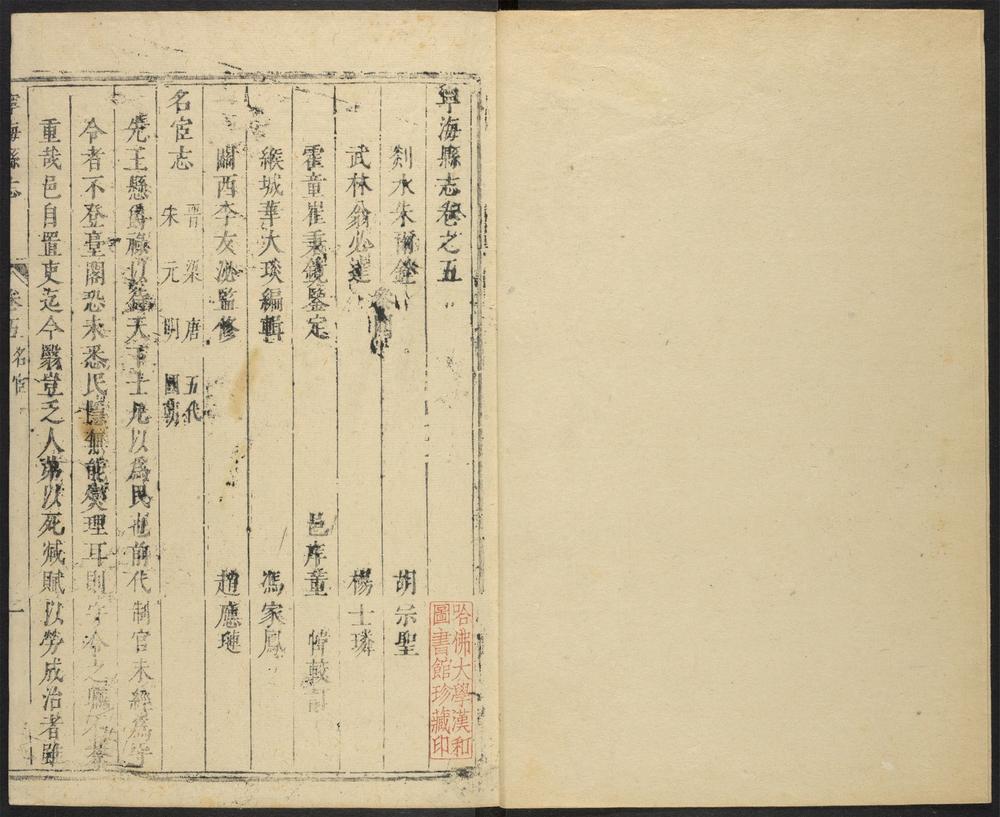 寧海縣志卷之五
剡水朱爾銓
胡宗聖
武林翁必達
楊士璘
霍童崔秉鏡鑒定
邑庠童 較
緱城華大琰編輯
馮家鳳
關西李友泌監修
趙應璉
名宦志
晉 梁 唐 五代
宋 元 明 國朝
先王懸爵祿以待天下士凡以爲民也前代制官未經爲守
令者不登臺閣恐未悉民隱無能爕理耳則守令之
重哉邑自置吏迄今縣豈乏人第以死減賦以勞成治者雖
寧海縣志
卷五
名宦
一
哈佛大學漢和
圖書館珍藏印